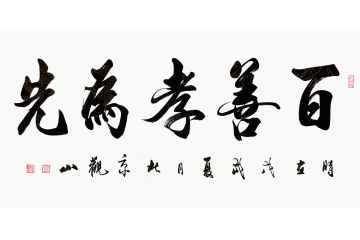 百善孝為先
時在戊戌夏月北京觀山